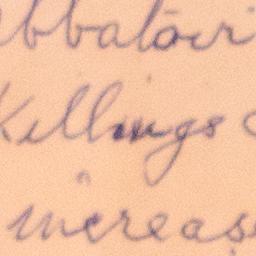 abbatoir
Killings
increase